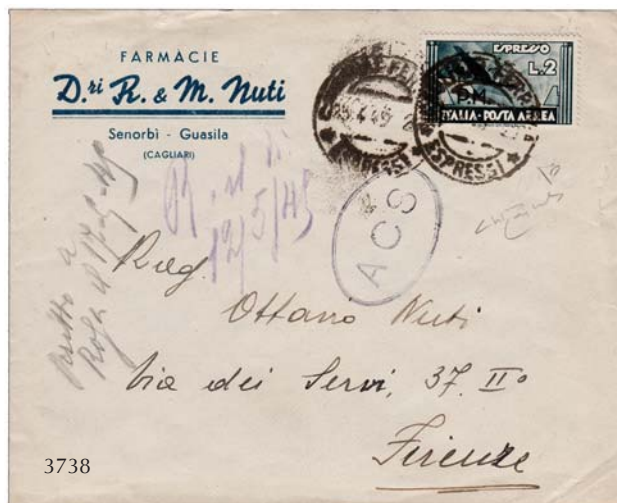 FARMACIE
D.ri R. & M. Nuti
Senorbì - Guasila
(CAGLIARI)
ESPRESSO
L.2
P.M.
ITALIA·POSTA AEREA
ESPRESSI
ESPRESSI
ACS
12/5/45
Rag.
Ottavio Nuti
Via dei Servi, 37. IIº
Firenze
3738